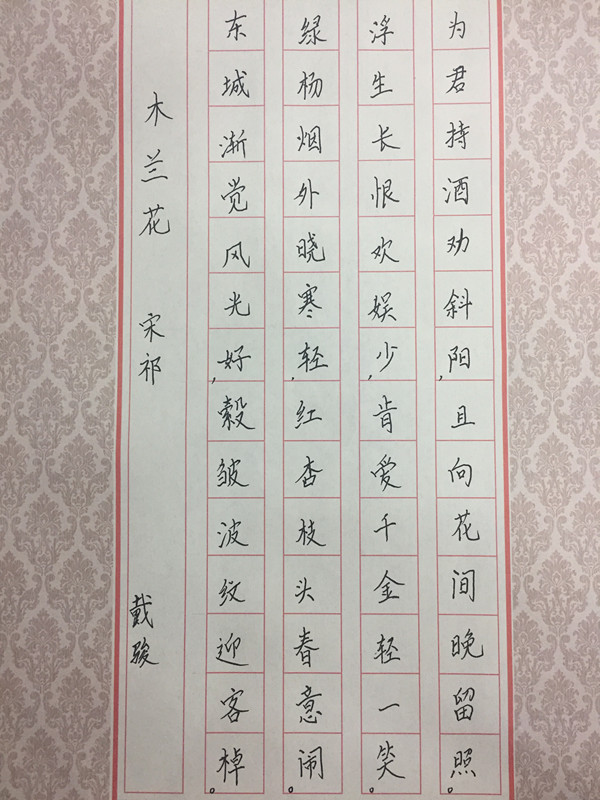 木兰花 宋祁 戴骏
东城渐觉风光好,縠皱波纹迎客棹。
绿杨烟外晓寒轻,红杏枝头春意闹。
浮生长恨欢娱少,肯爱千金轻一笑。
为君持酒劝斜阳,且向花间晚留照。